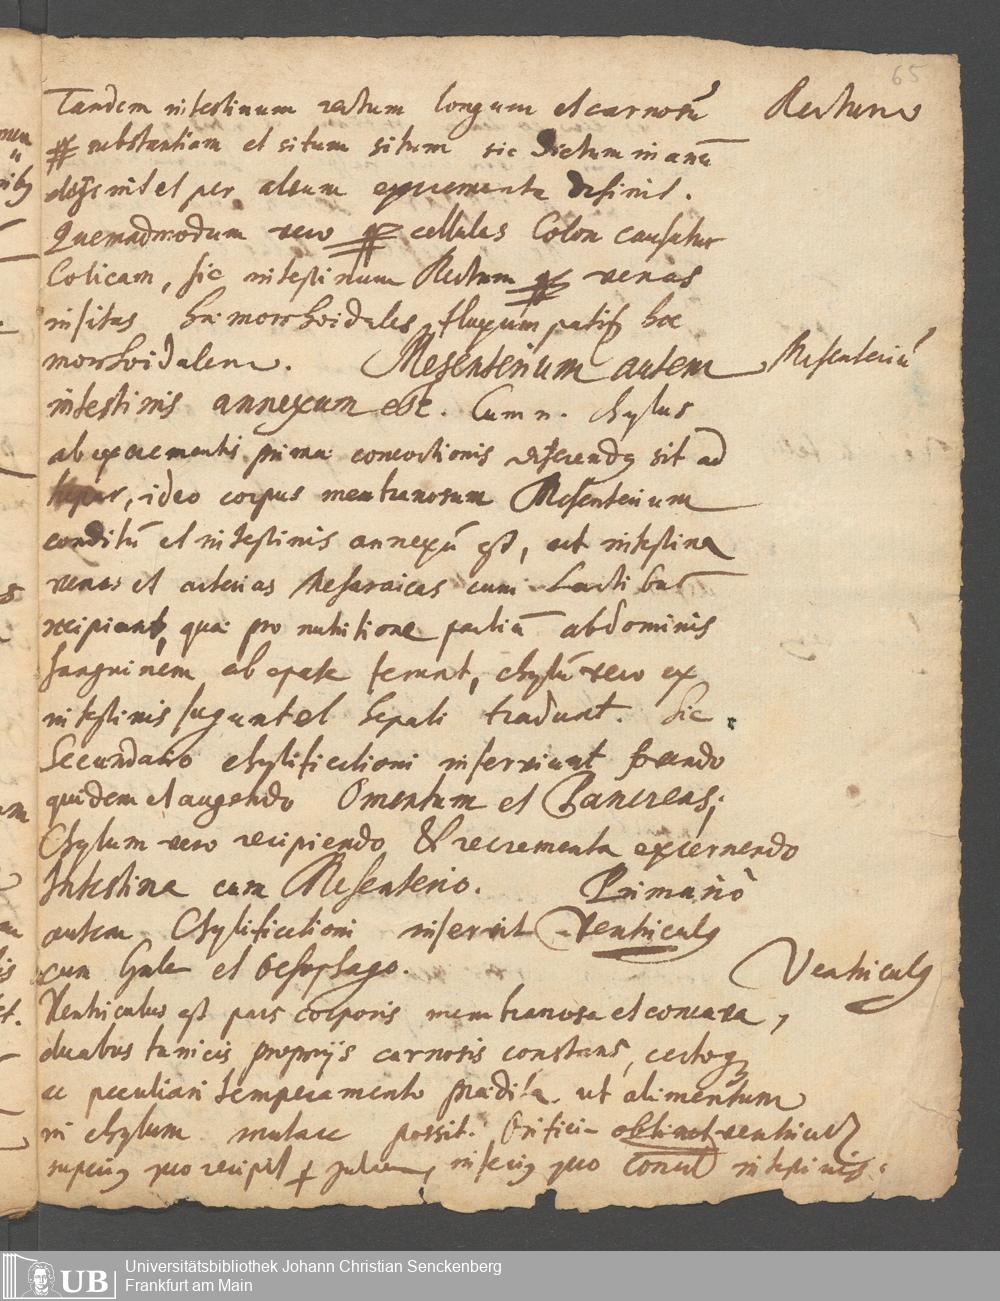 65
Tandem intestinum rectum longum et carnosū Rectum
substantiam et situm situm sic dictum in anū
desinit et per alvum excrementa definit.
Quemadmodum vero cellulas Colon causatur
Colicam, sic intestinum Rectum venas
insitas hæmorrhoidales, fluxum patit hæ
morrhoidalem. Mesenterium autem Mesenteriū
intestinis annexum est. Cum n. chylus
ab excrementis primæ concoctionis sit ad
hepar, ideo corpus membranosum Mesenterium
conditū et intestinis annexū est, ut intestina
venas et arterias Mesaraicas cum Lacti bus
recipiant, quæ pro nutritione partiū abdominis
sanguinem ab epate ferunt, chylū vero ex
intestinis sugunt et hepati tradunt. Sic
Secundario chylificationi inserviunt fovendo
quidem et augendo Omentum et Pancreas;
Chylum vero recipiendo & recrementa excernendo
Intestina cum Mesenterio. Primariò
autem Chylificationi inservit Ventriculus
cum Gula et oesophago. Ventriculus
Ventriculus est pars corporis membranosa et concava,
duabus tunicis proprijs carnosis constans, certoq
ac peculiari temperamento prædita ut alimentum
in chylum mutare possit. Orificia obtinet ventriculus
superius quo recipit, inferius quo intestinis.
Universitätsbibliothek Johann Christian Senckenberg
Frankfurt am Main
UB